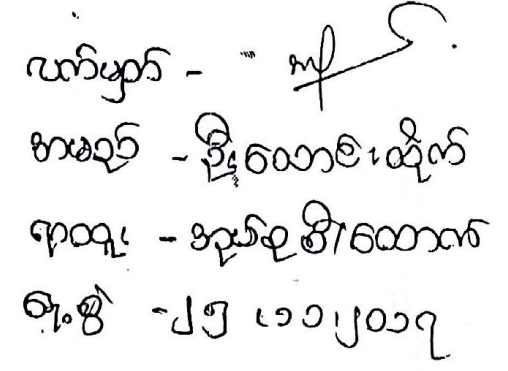 လက်မှတ် -
အမည် - ဦးသောင်းထိုက်
ရာထူး - အုပ်စုစီးထောက်
ရက်စွဲ - ၂၅.၁၁.၂၀၁၇